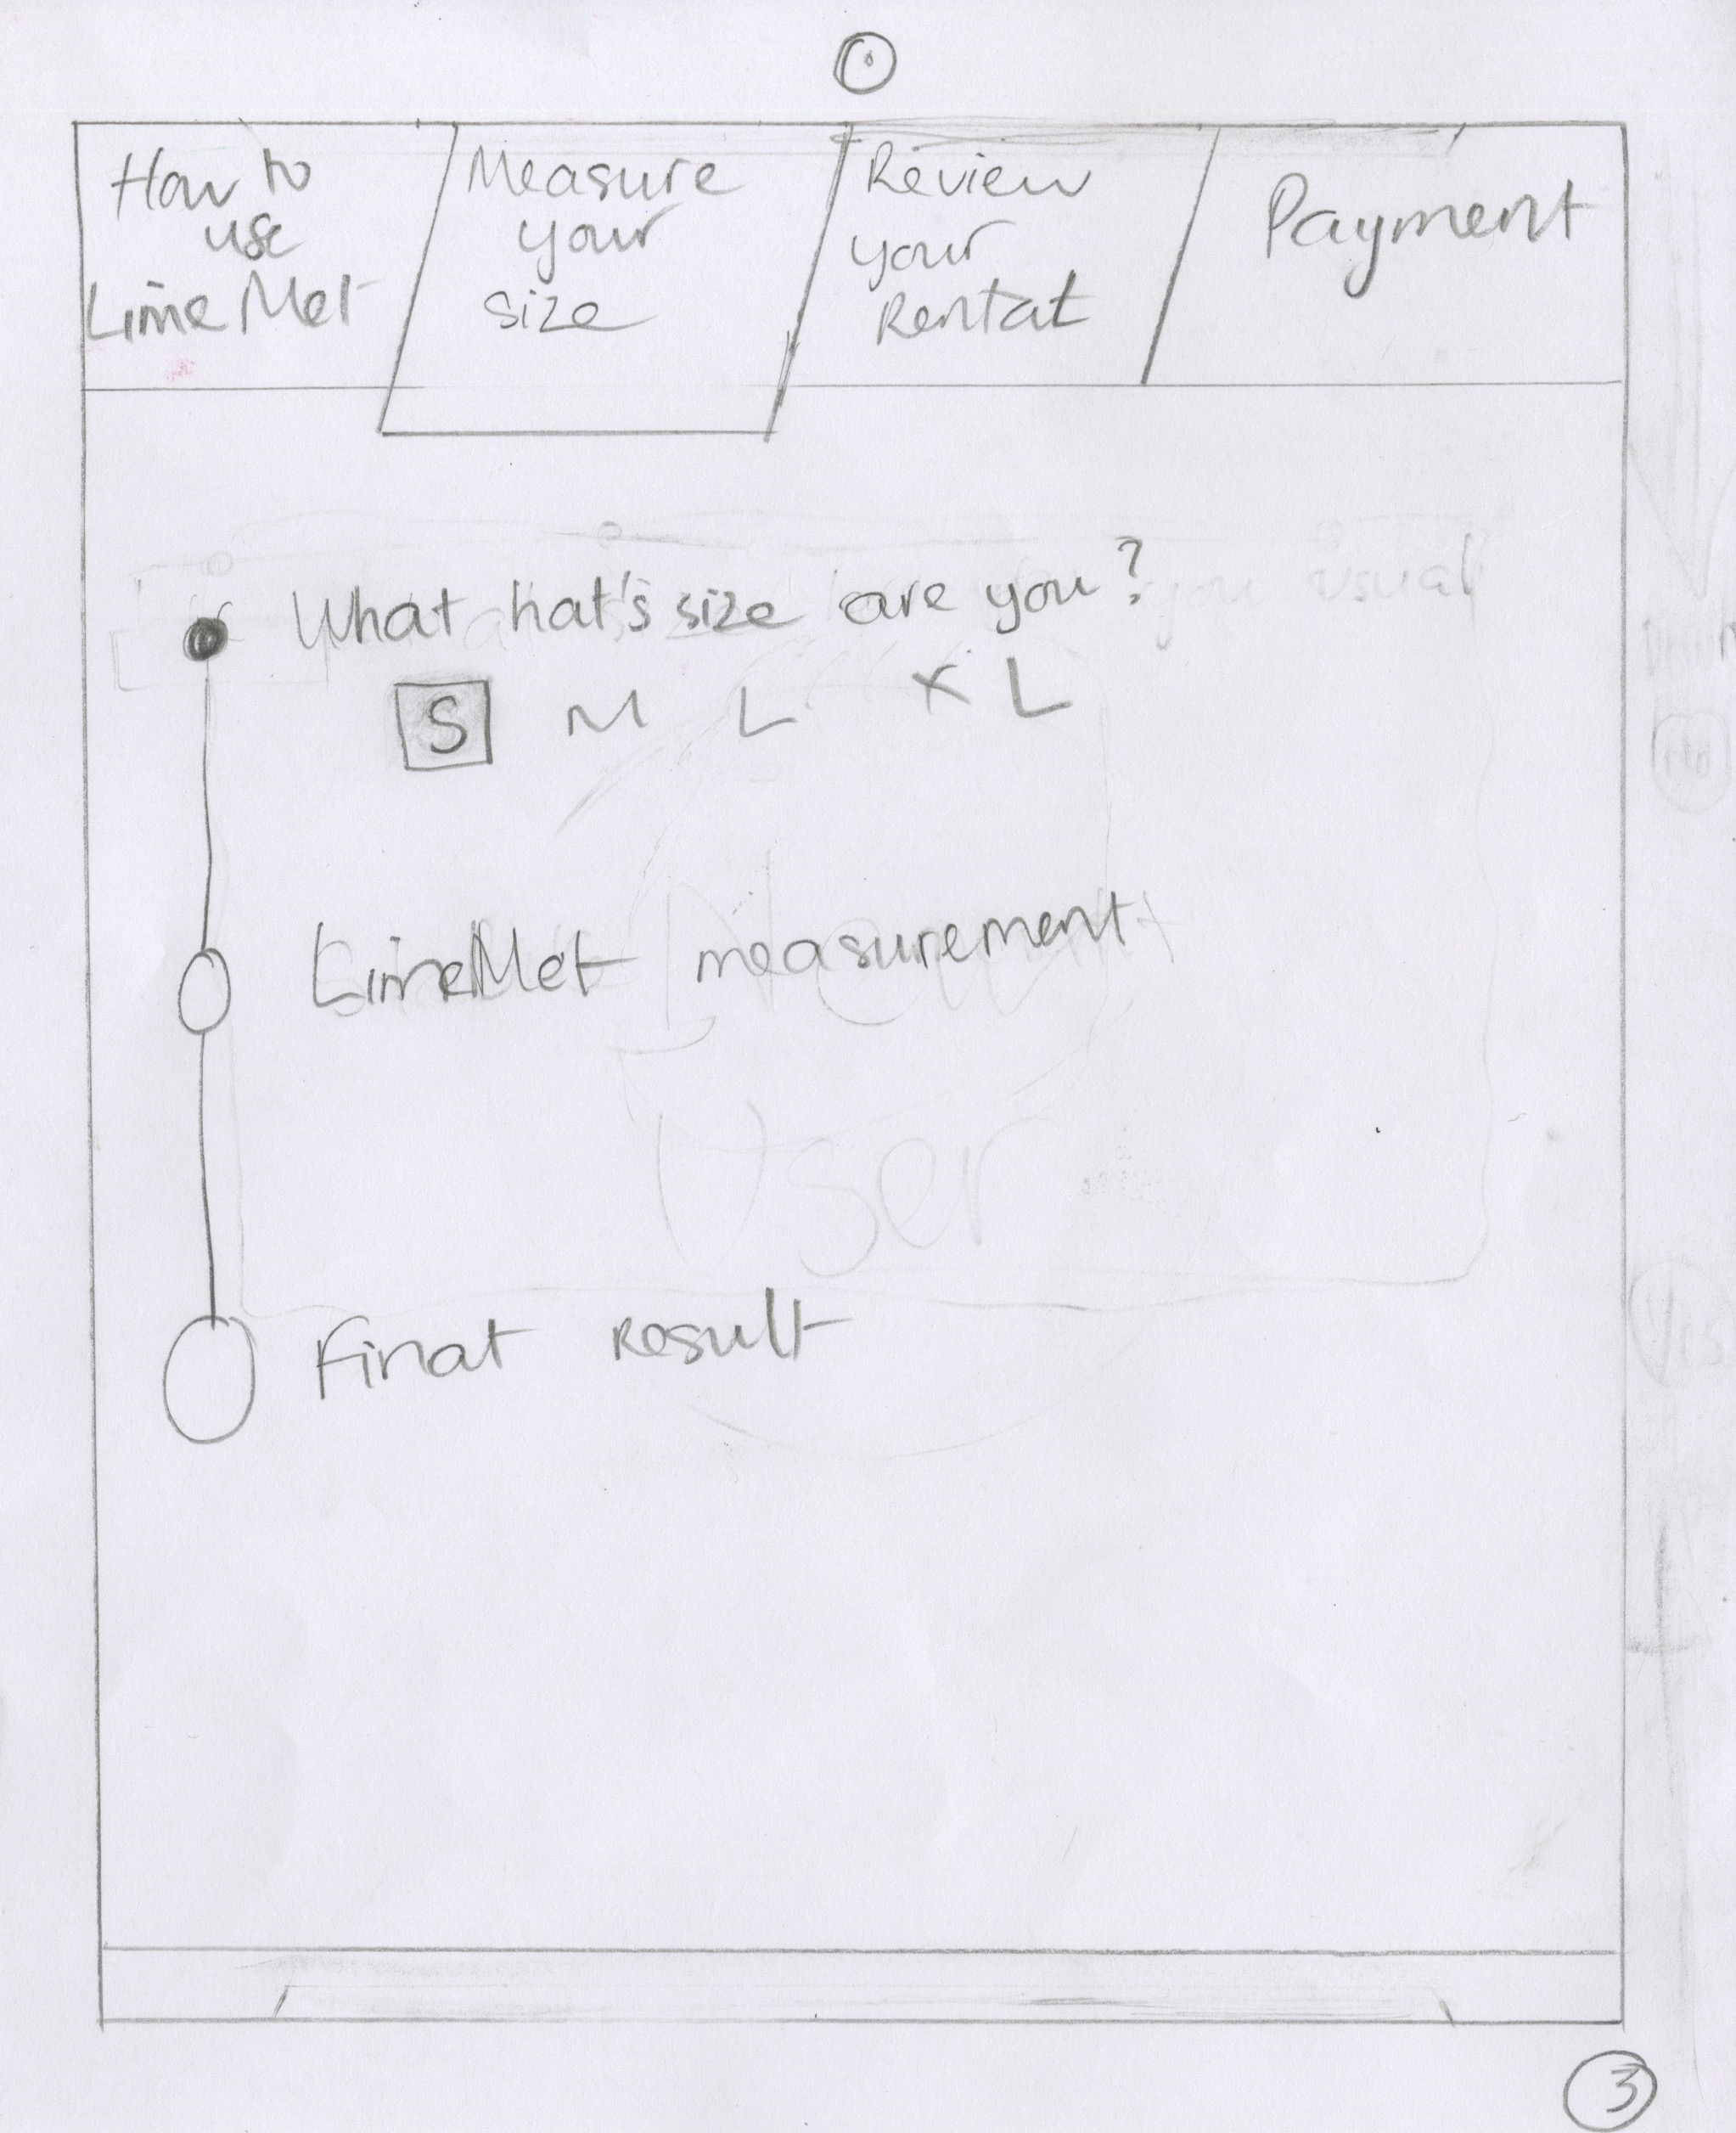 How to
use
LimeMet
Measure
your
size
Review
your
Rental
Payment
What hat's size are you?
you usual
S M L XL
LimeMet measurement
New
User
Final result
3